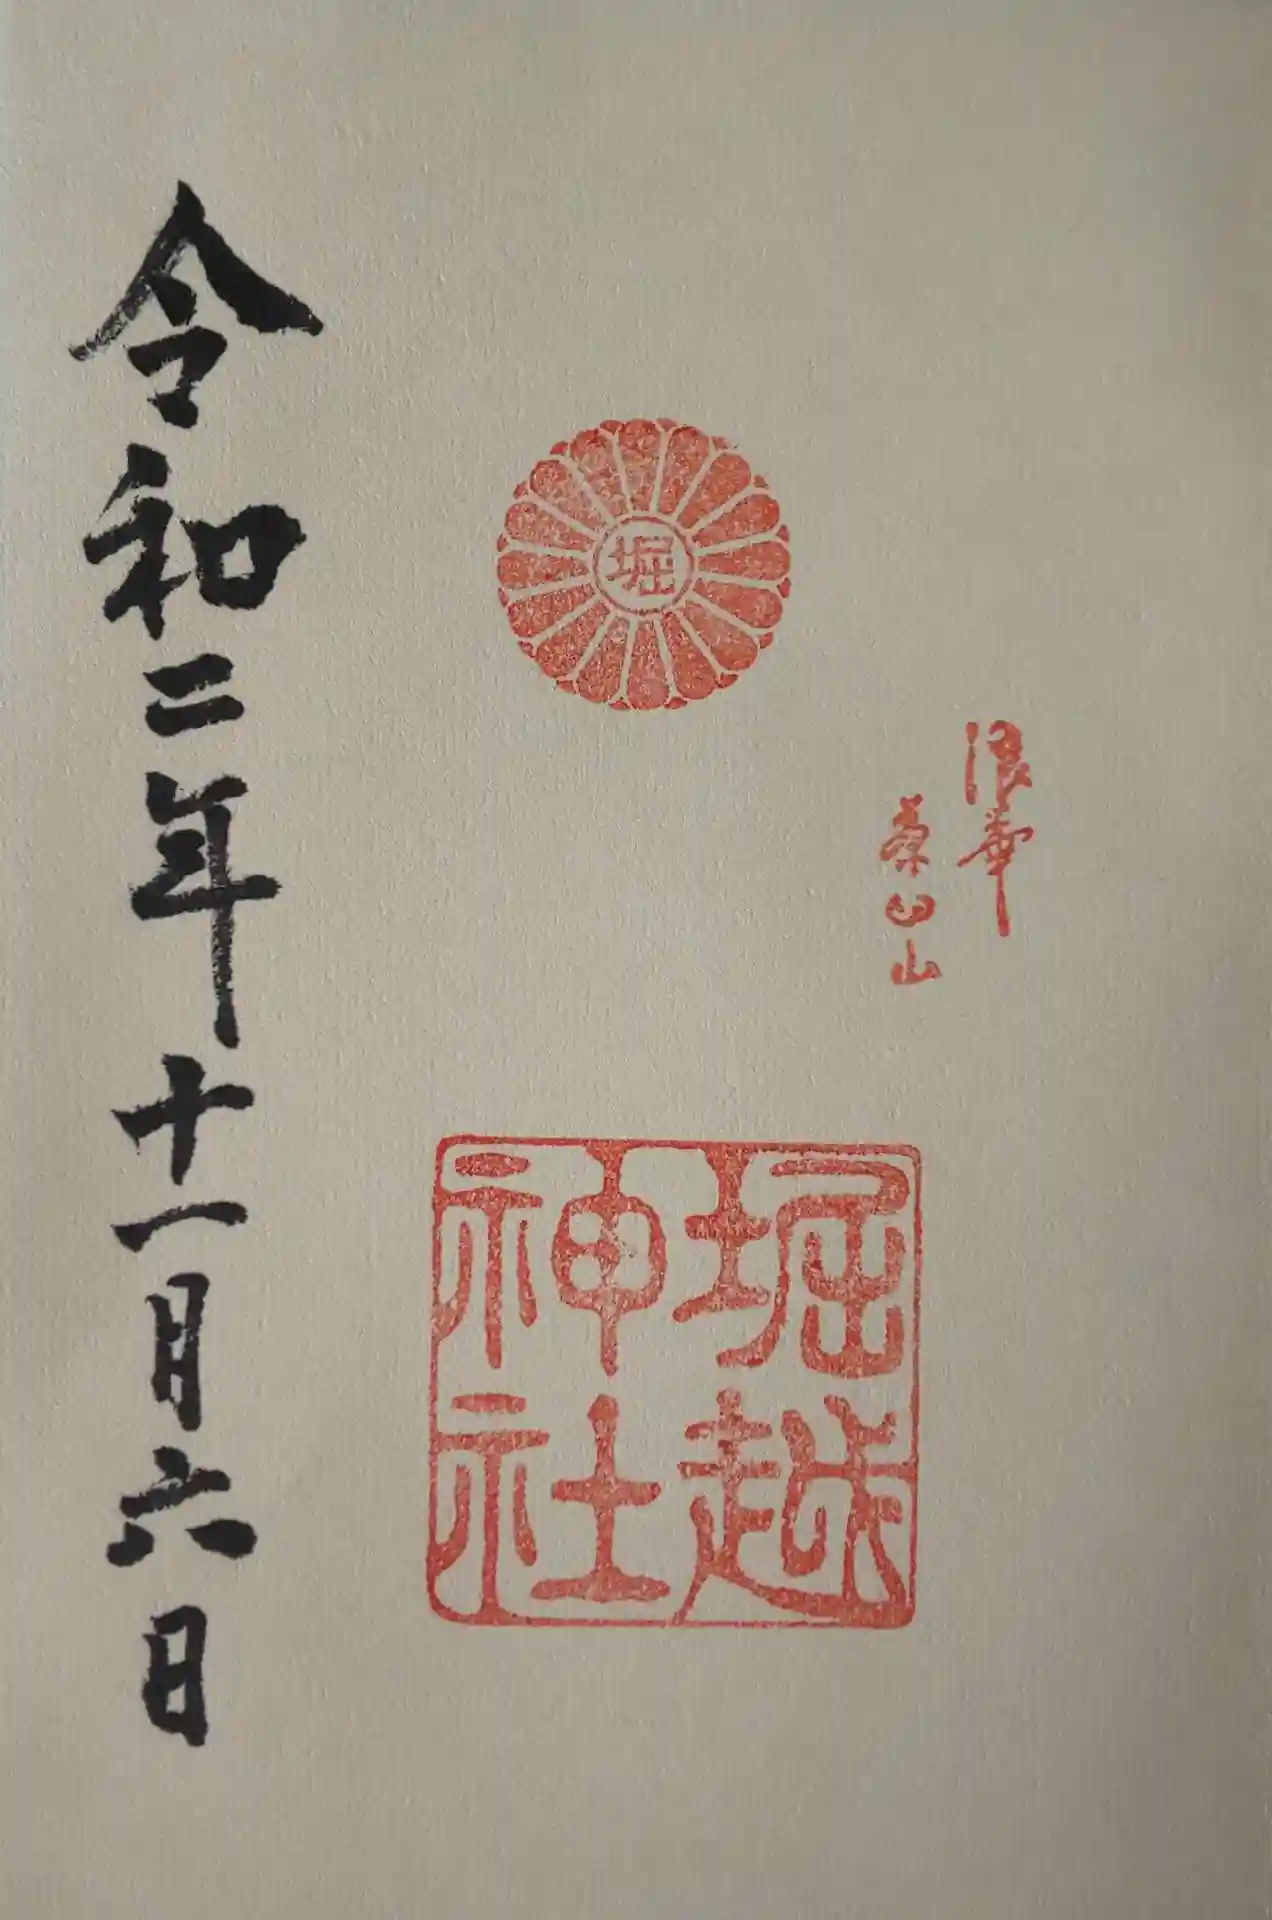 浪華
茶臼山
堀
堀越
神社
令和二年十一月六日